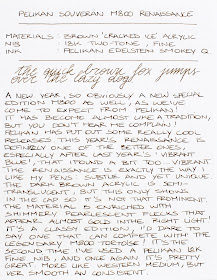 PELIKAN SOUVERÄN M800 RENAISSANCE
MATERIALS: BROWN 'CRACKED ICE' ACRYLIC
NIB : 18K TWO-TONE, FINE
INK : PELIKAN EDELSTEIN SMOKEY Q
The quick brown fox jumps
over the lazy dog.
A NEW YEAR, SO OBVIOUSLY A NEW SPECIAL
EDITION M800 AS WELL, AS WE'VE
COME TO EXPECT FROM PELIKAN!
IT HAS BECOME ALMOST LIKE A TRADITION,
BUT YOU DON'T HEAR ME COMPLAIN!
PELIKAN HAS PUT OUT SOME REALLY COOL
RELEASES THIS YEAR, RENAISSANCE IS
DEFINITELY ONE OF THE BETTER ONES.
ESPECIALLY AFTER LAST YEAR'S 'VIBRANT
BLUE', THAT I FOUND A BIT TOO... VIBRANT.
THE RENAISSANCE IS EXACTLY THE WAY I
LIKE MY PENS: SUBTLE AND YET UNIQUE.
THE DARK BROWN ACRYLIC IS SEMI-
TRANSLUCENT, BUT THIS ONLY SHOWS
IN THE CAP SO IT'S NOT THAT PROMINENT.
THE MATERIAL IS COVERED WITH
SHIMMERY, PEARLESCENT FLECKS THAT
APPEAR ALMOST GOLD IN THE RIGHT LIGHT.
IT'S A CLASSY EDITION, I'D DARE TO
SAY ONE THAT CAN COMPETE WITH THE
LEGENDARY M800 TORTOISE! IT'S THE
SECOND TIME I'VE USED A PELIKAN 18K
FINE NIB, AND ONCE AGAIN IT'S PRETTY
GREAT. MORE LIKE A WESTERN MEDIUM, BUT
VERY SMOOTH AN CONSISTENT.